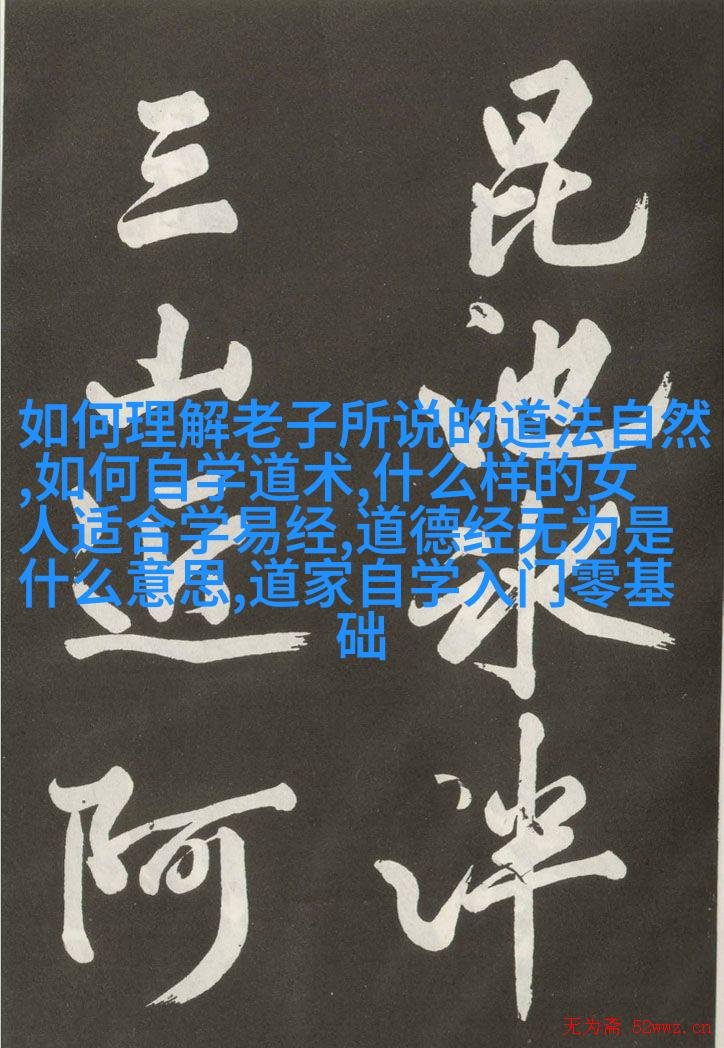 昆池泮
三山阿
如何理解老子所说的道法自然
,如何自学道术,什么样的女
人适合学易经,道德经无为是
什么意思,道家自学入门零基
础
无为斋 52wwz.cn